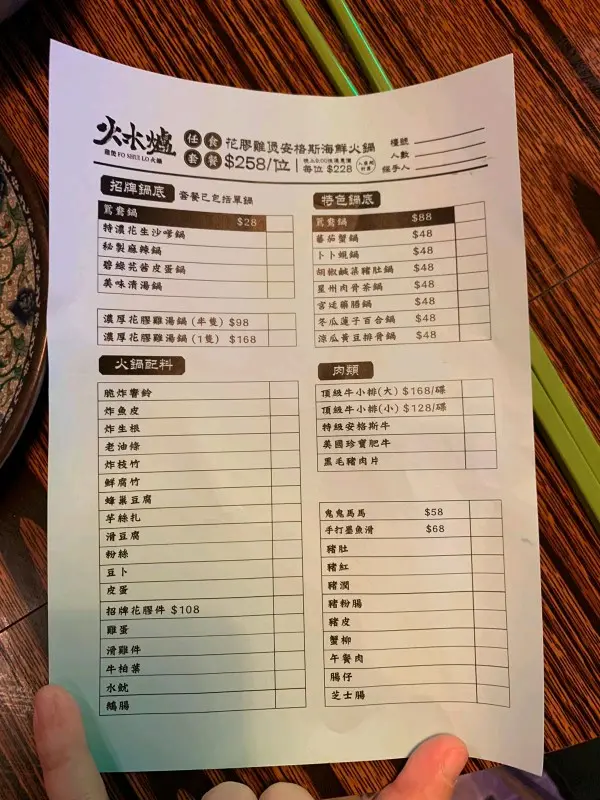 火水爐
龍煲 FO SHUI LO 火鍋
任食套餐
花膠雞煲安格斯海鮮火鍋
$258/位
晚上9:00後優惠價
每位 $228
檯號
人數
經手人
招牌鍋底 套餐已包括單鍋
鴛鴦鍋 $28
特濃花生沙嗲鍋
秘製麻辣鍋
碧綠芫茜皮蛋鍋
美味清湯鍋
濃厚花膠雞湯鍋 (半隻) $98
濃厚花膠雞湯鍋 (1隻) $168
火鍋配料
脆炸響鈴
炸魚皮
炸生根
老油條
炸枝竹
鮮腐竹
蜂巢豆腐
芋絲扎
滑豆腐
粉絲
豆卜
皮蛋
招牌花膠件 $108
雞蛋
滑雞件
牛柏葉
水魷
鵝腸
特色鍋底
鴛鴦鍋 $88
蕃茄蟹鍋 $48
卜卜蜆鍋 $48
胡椒鹹菜豬肚鍋 $48
星州肉骨茶鍋 $48
宮廷藥膳鍋 $48
冬瓜蓮子百合鍋 $48
涼瓜黃豆排骨鍋 $48
肉類
頂級牛小排(大) $168/碟
頂級牛小排(小) $128/碟
特級安格斯牛
美國珍寶肥牛
黑毛豬肉片
鬼鬼馬馬 $58
手打墨魚滑 $68
豬肚
豬紅
豬潤
豬粉腸
豬皮
蟹柳
午餐肉
腸仔
芝士腸